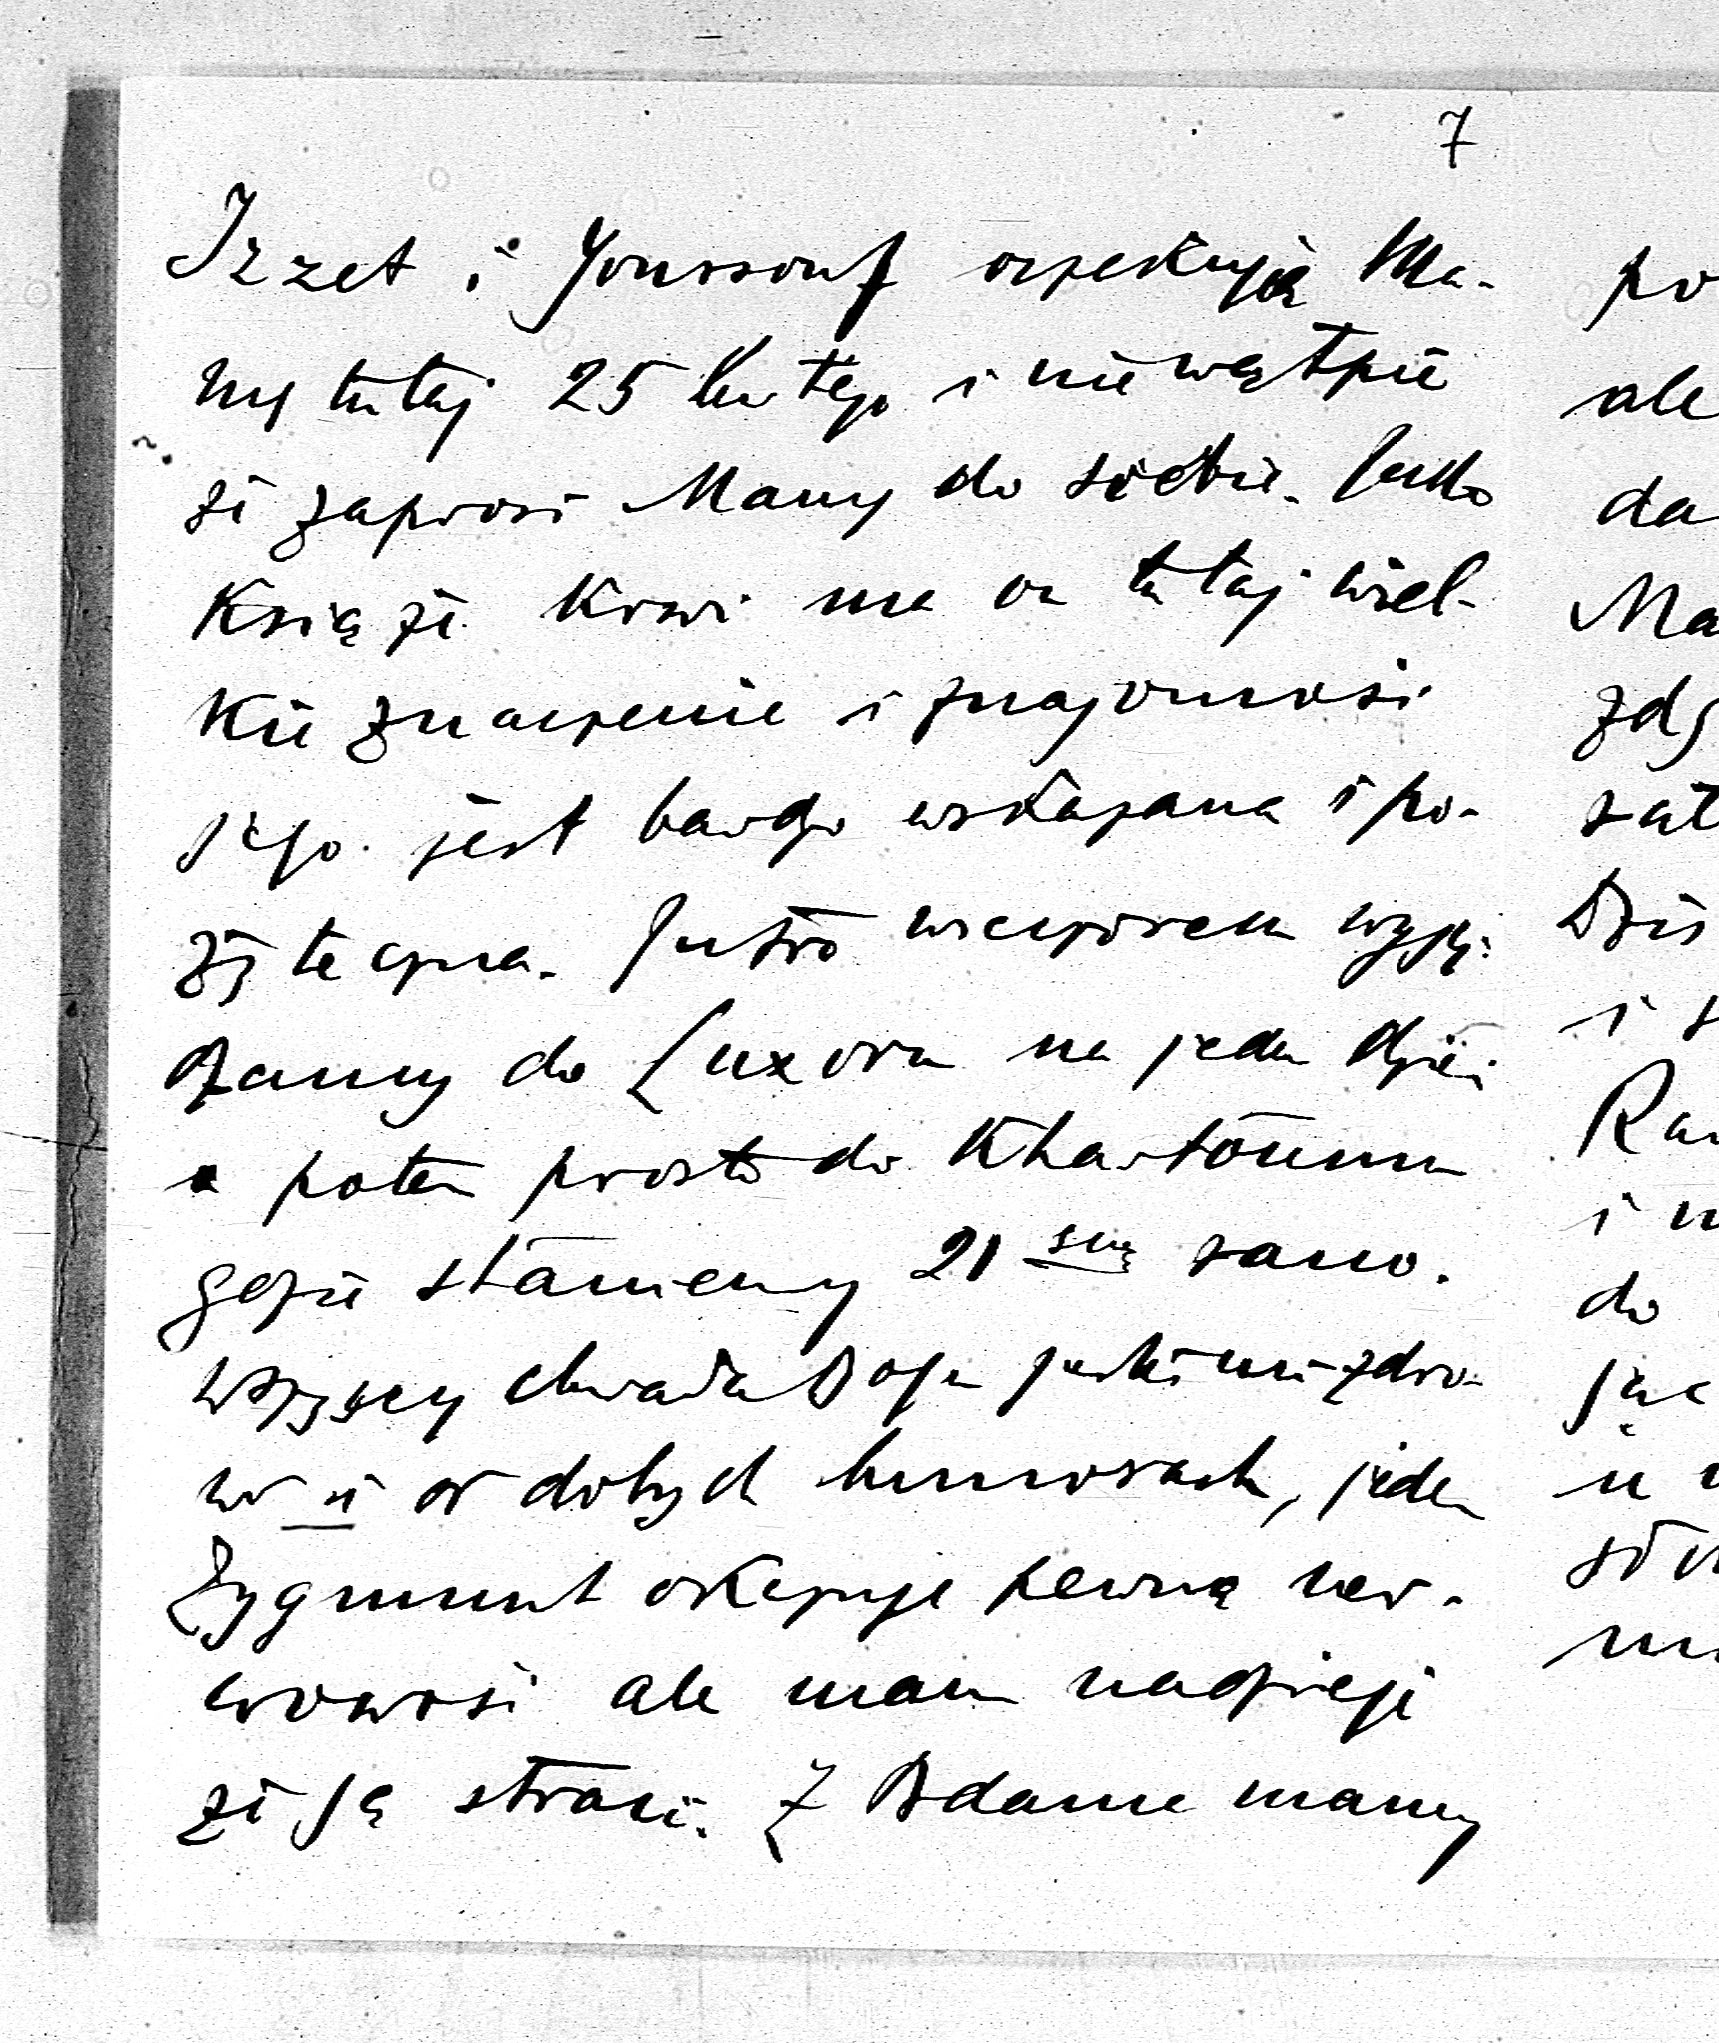 7
Izzet i Youssouf oczekują Ma-
my tutaj 25 lutego i nie wątpię
że zaprosi Mamy do siebie. Jako
Książe Krwi ma on tutaj wiel-
kie znaczenie i znajomość
jego jest bardzo wskazana i po-
żyteczna. Jutro wieczorem wyje-
dzamy do Luxoru na jeden dzień
a potem prosto do Khartoumu
gdzie staniemy 21 szą rano.
Wszyscy chwała Boga jesteśmy zdro-
wi i w dobrych humorach, jeden
Zygmunt okazuje pewną ner-
wowość ale mam nadzieję
że ją straci. Z Adama mamy
po
ale
da
Ma
zdj
zat
Dziś
i s
Ra
i m
do
jąc
u